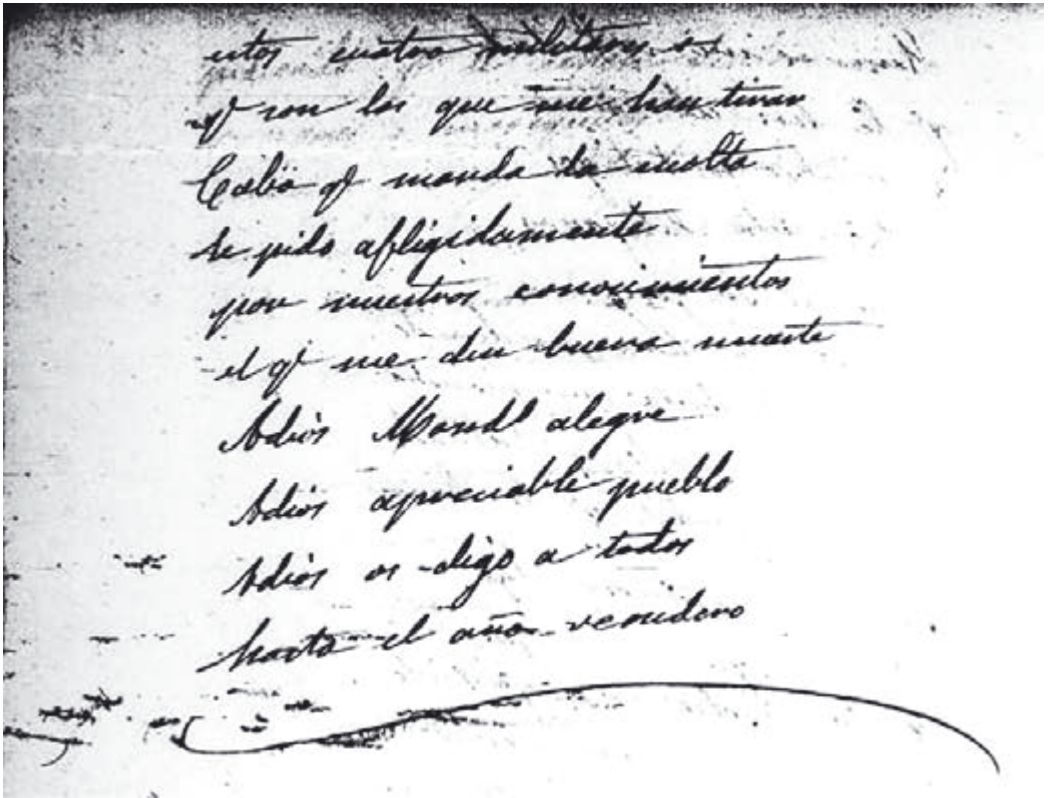 estos cuatro militares
q̄ son los que me han tirar
Cabo q̄ manda la escolta
le pido afligidamente
por nuestros conocimientos
el q̄ me den buena muerte
Adios alegre
Adios apreciable pueblo
Adios os digo a todos
hasta el año venidero